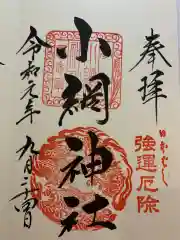 奉拝
強運厄除
小網神社
令和元年九月二十四日